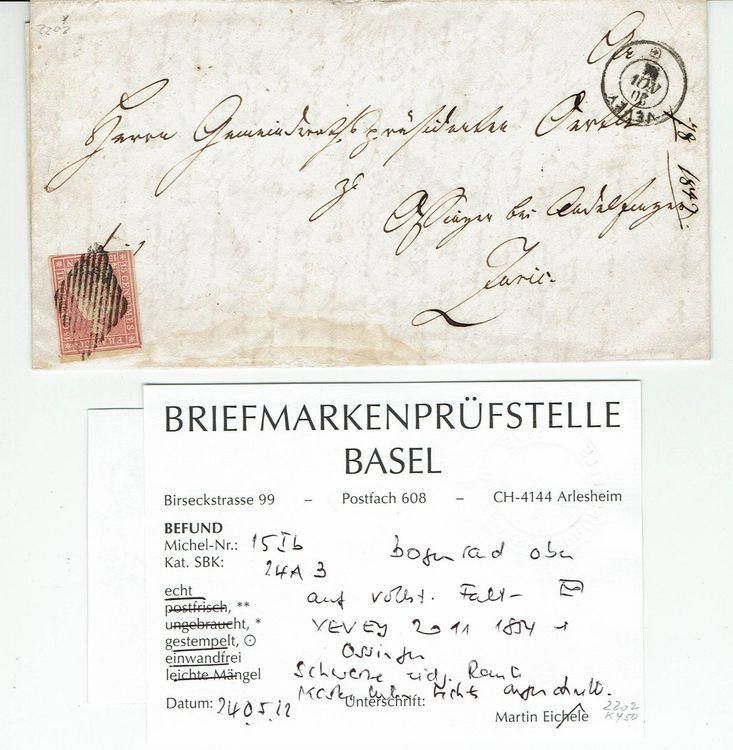 2202
Herrn Gemeindrathspräsidenten
zu
Ossingen bei Andelfingen
Zürich.
VEVEY
NOV
1847
15 CENTIMES
BRIEFMARKENPRÜFSTELLE
BASEL
Birseckstrasse 99 – Postfach 608 – CH-4144 Arlesheim
BEFUND
Michel-Nr.: 15 I b Bogenrand oben
Kat. SBK: 24A 3
echt auf vollst. Falt-
postfrisch, **
ungebraucht, * VEVEY 20 11 1854 →
gestempelt, ⊙ Ossingen
einwandfrei Schwarze eidg. Raute
leichte Mängel Marke links
Datum: 24.05.22 Unterschrift:
Martin Eichele
2202
K450